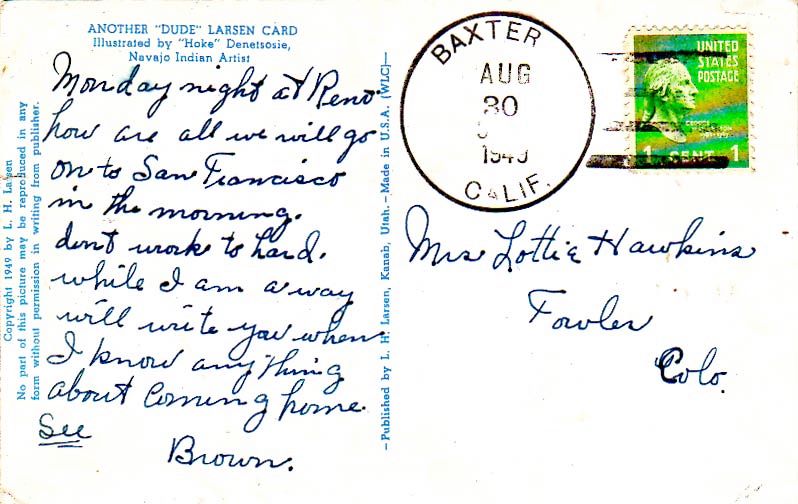 ANOTHER "DUDE" LARSEN CARD
Illustrated by "Hoke" Denetsosie,
Navajo Indian Artist
Monday night at Reno
how are all we will go
on to San Francisco
in the morning.
don't work to hard.
while I am a way
will write you when
I know anything
about coming home.
See
Brown.
Copyright 1949 by L. H. Larsen
No part of this picture may be reproduced in any
form without permission in writing from publisher.
—Published by L. H. Larsen, Kanab, Utah.—Made in U.S.A. (WLC)—
BAXTER
AUG
30
1949
CALIF.
UNITED
STATES
POSTAGE
1 CENT 1
Mrs Lottie Hawkins
Fowler
Colo.